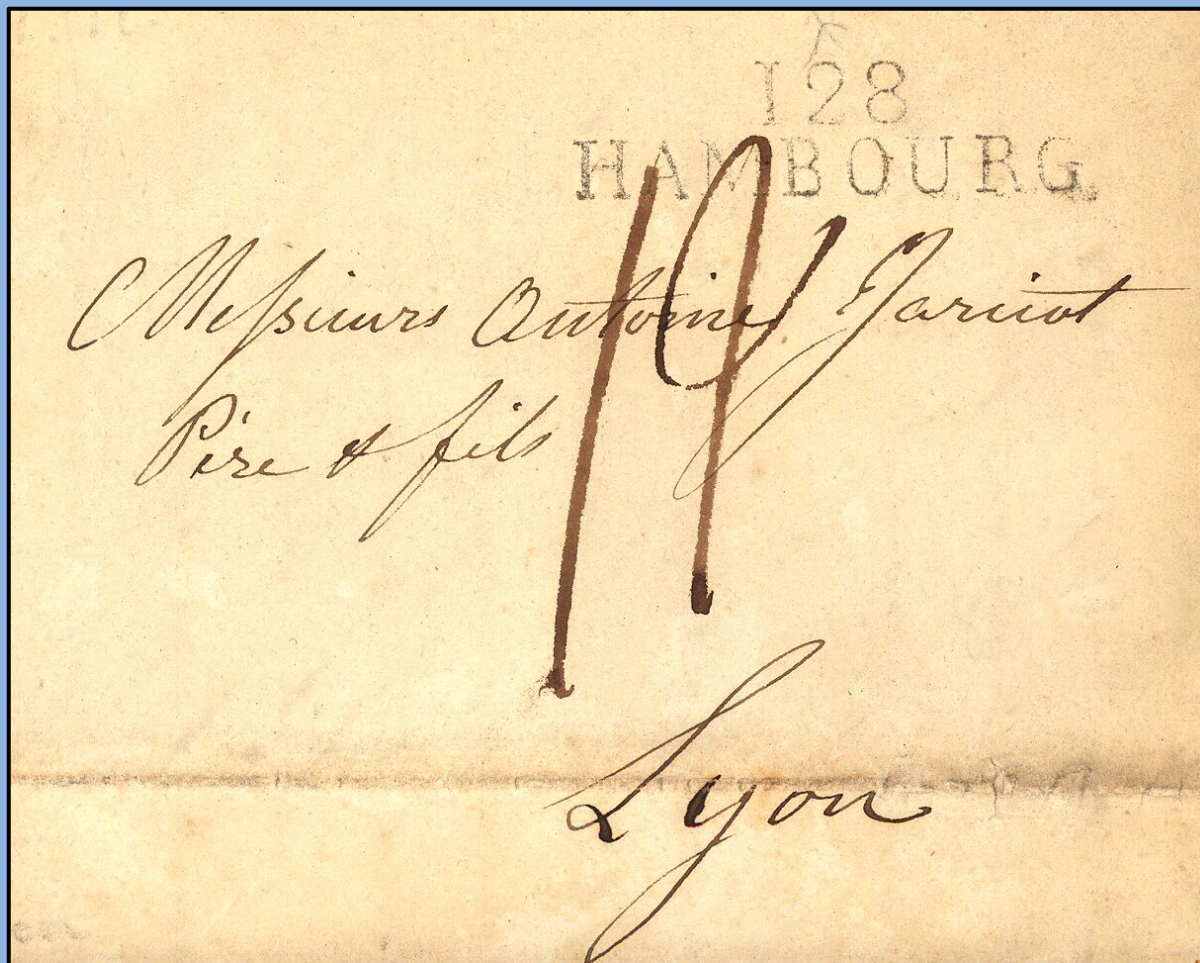 128
HAMBOURG
19
Messieurs Antoine Jaricot
Père & fils
Lyon